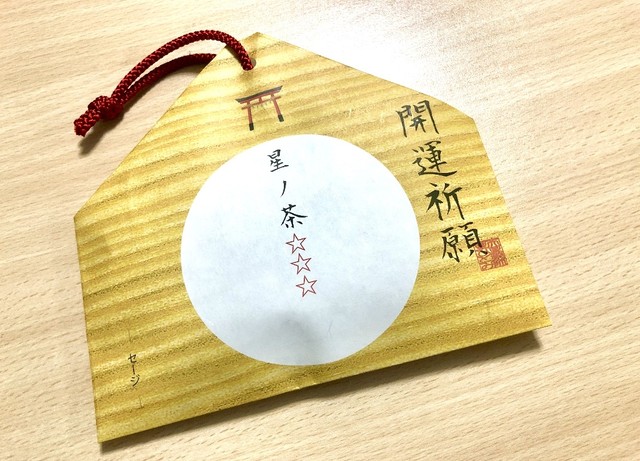 開運祈願
星ノ茶
☆☆☆
セージ